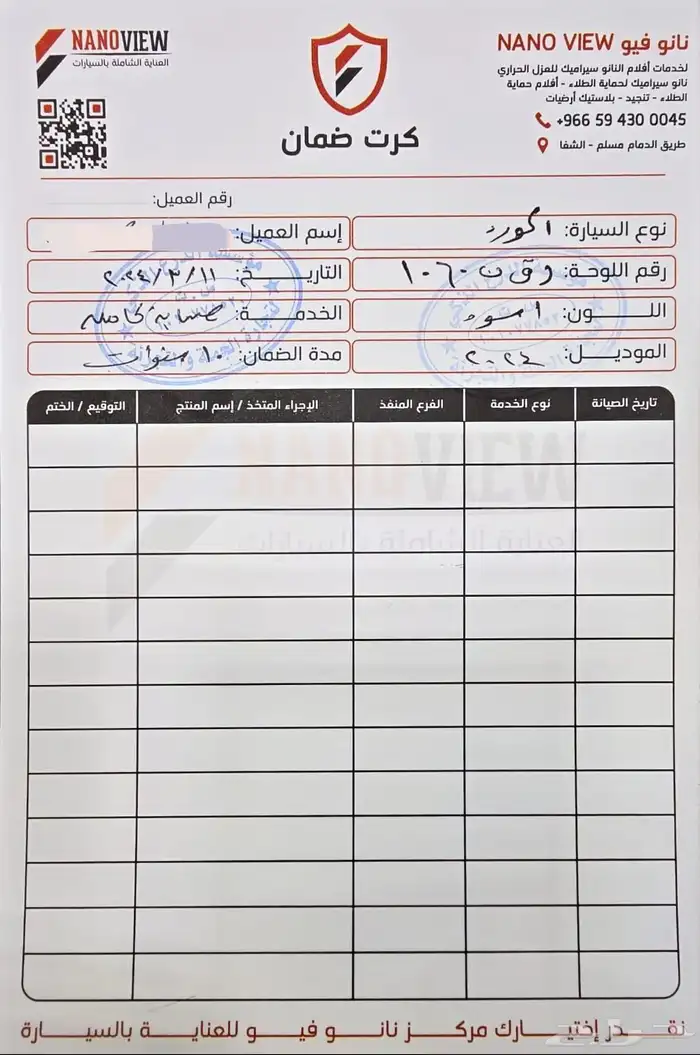 NANOVIEW
العناية الشاملة بالسيارات
نانو فيو NANO VIEW
لخدمات أفلام النانو سيراميك للعزل الحراري
نانو سيراميك لحماية الطلاء - أفلام حماية
الطلاء - تنجيد - بلاستيك أرضيات
+966 59 430 0045
طريق الدمام مسلم - الشفا
كرت ضمان
رقم العميل:
نوع السيارة: اكورد
إسم العميل:
رقم اللوحة: ١٠٦٠
التاريـــخ: ٢٠٢٤/٢/١١
اللـــون: اسود
الخدمـــة: حماية كاملة
الموديـــل: ٢٠٢٤
مدة الضمان: ١٠ سنوات
تاريخ الصيانة
نوع الخدمة
الفرع المنفذ
الإجراء المتخذ / إسم المنتج
التوقيع / الختم
نقـــدر إختيـــارك مركـــز نانـــو فيـــو للعنايـــة بالسيـــارة